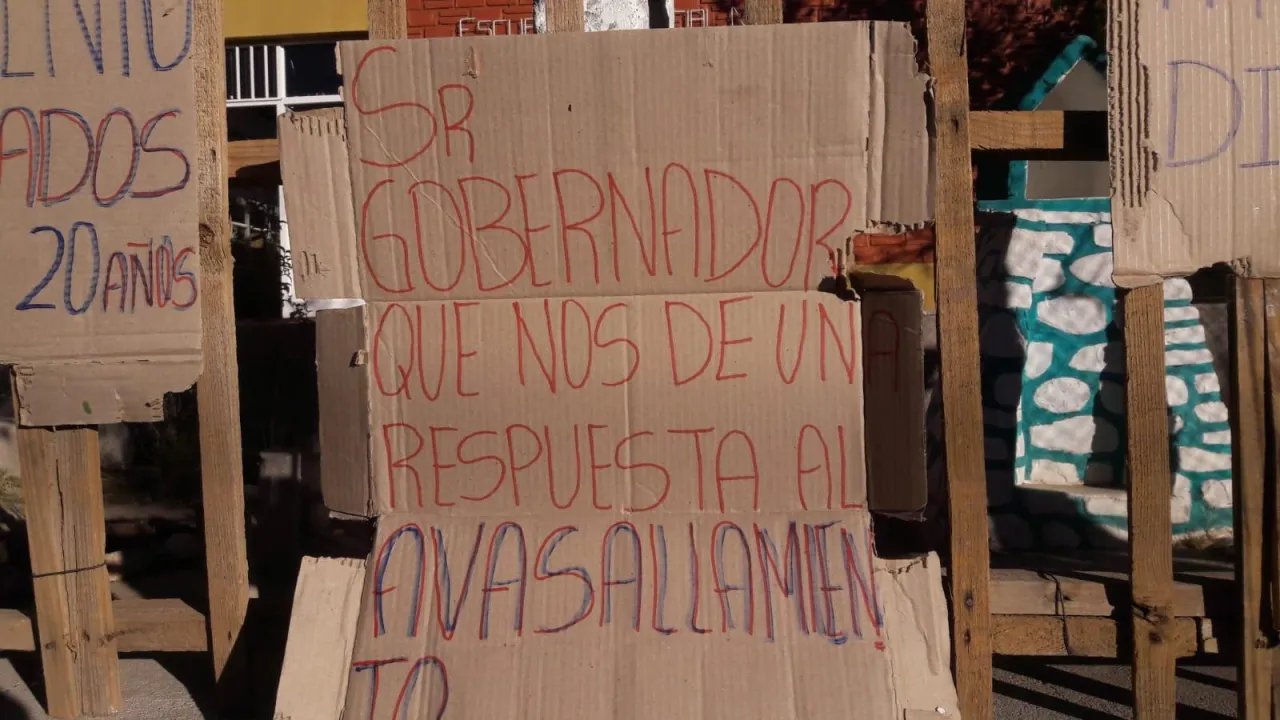 ADOS
20 AÑOS
SR
GOBERNADOR
QUE NOS DE UNA
RESPUESTA AL
AVASALLAMIEN
TO
DI